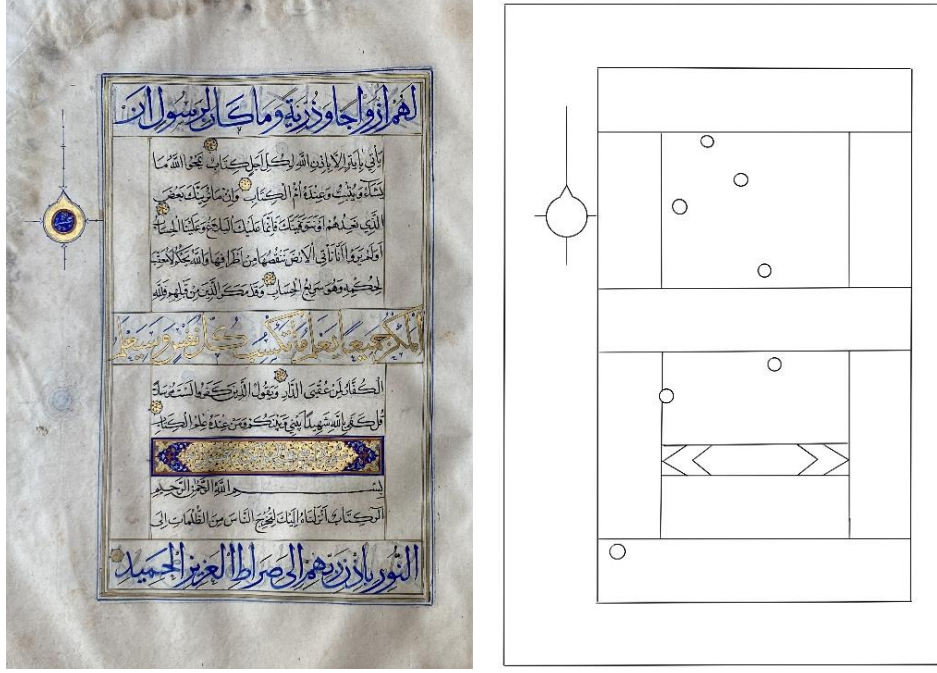 لهم أزواجا وذرية وما كان لرسول أن
يأتي بآية إلا بإذن الله لكل أجل كتاب يمحوا الله ما
يشاء ويثبت وعنده أم الكتاب وإن ما نرينك بعض
الذي نعدهم أو نتوفينك فإنما عليك البلاغ وعلينا الحساب
أولم يروا أنا نأتي الأرض ننقصها من أطرافها والله يحكم لا معقب
لحكمه وهو سريع الحساب وقد مكر الذين من قبلهم فلله
المكر جميعا يعلم ما تكسب كل نفس وسيعلم
الكفار لمن عقبى الدار ويقول الذين كفروا لست مرسلا
قل كفى بالله شهيدا بيني وبينكم ومن عنده علم الكتاب
بسم الله الرحمن الرحيم
الر كتاب أنزلناه إليك لتخرج الناس من الظلمات إلى
النور بإذن ربهم إلى صراط العزيز الحميد